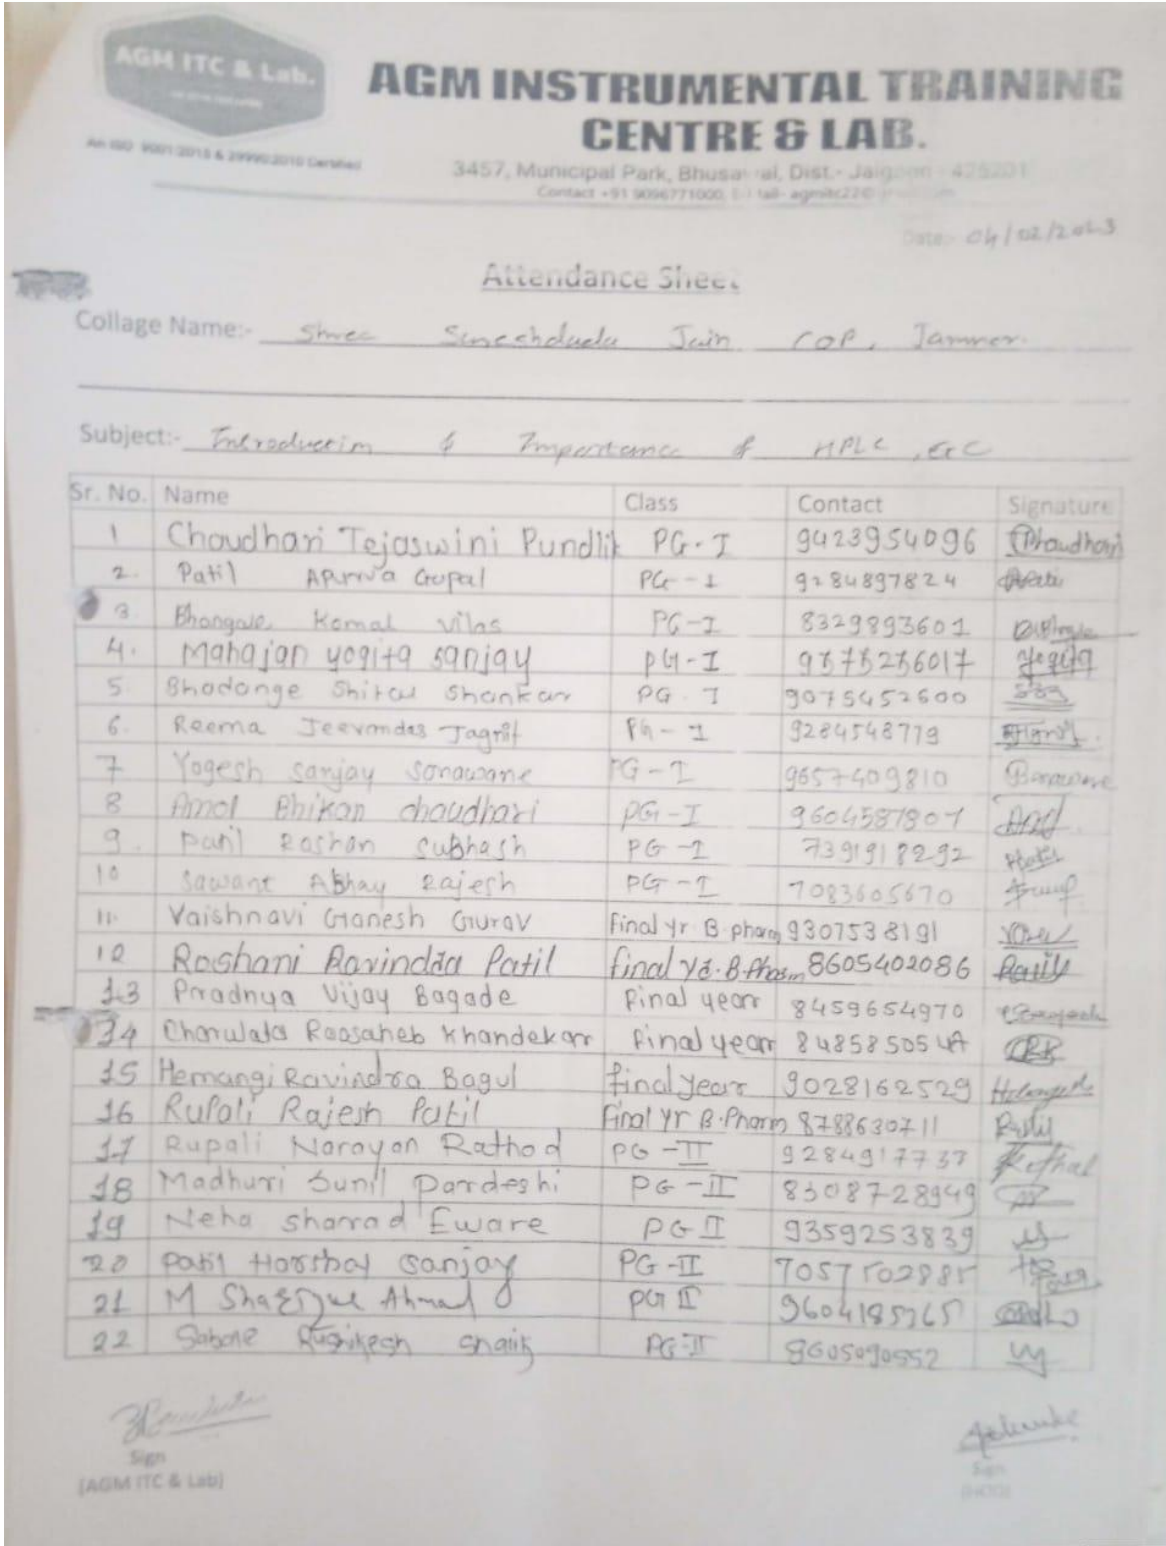 AGM ITC & Lab.
AGM INSTRUMENTAL TRAINING
CENTRE & LAB.
An ISO 9001:2015 & 29990:2010 Certified
3457, Municipal Park, Dist.- 425201
Contact +91 9096771000,
Date:- 04/02/2023
Attendance Sheet
Collage Name:- Shree Sureshdada Jain COP, Jamner.
Subject:- Introduction & Importance of HPLC, etc
Sr. No. Name Class Contact Signature
1 Choudhari Tejaswini Pundlik PG-I 9423954096 Choudhari
2. Patil Apurva Gopal PG-I 9284897824
3. Bhangale Komal Vilas PG-I 8329893601
4. Mahajan yogita sanjay PG-I Yogita
5. Shankar PG-I 9075452600
6. Reema Jeevandas Jagrit PG-I 9284548779
7 Yogesh sanjay sonawane PG-I 9657409810
8 Amol Bhikan chaudhari PG-I 9604587807
9. Patil Roshan Subhash PG-I 7391918292
10 Sawant Abhay Rajesh PG-I 7083605670
11. Vaishnavi Ganesh Gurav Final yr B.pharm 9307538191
12 Roshani Ravindra Patil final yr. B.Pharm 8605402086 Patil
13 Pradnya Vijay Bagade Final year 8459654970
14 Charulata Raosaheb Khandekar Final year
15 Hemangi Ravindra Bagul final year 9028162529
16 Rupali Rajesh Patil Final Yr B.Pharm 8788630711
17 Rupali Narayan Rathod PG-II 9284917737 Rathod
18 Madhuri Sunil Pardeshi PG-II 8308728949
19 Neha sharad Eware PG II 9359253839
20 Patil Harshal Sanjay PG-II
21 M Ahmad PG II
22 Rushikesh PG-II 8605090552
Sign
(AGM ITC & Lab)
Sign
(HOD)